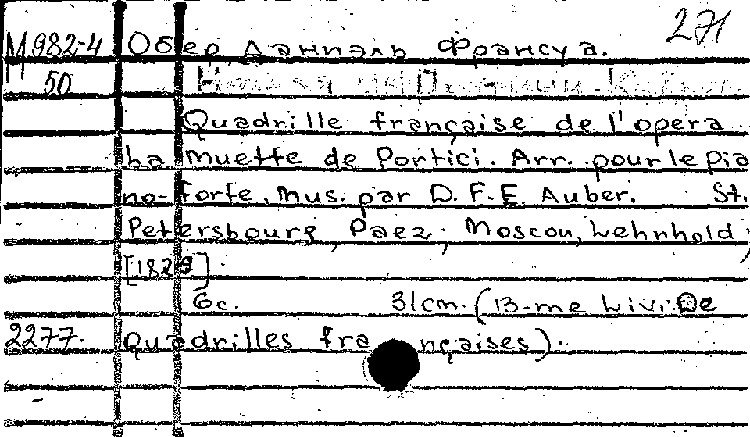 271
М982-4 Обер, Даниэль Франсуа.
50
Quadrille française de l'opera
La muette de Portici. Arr. pour le pia
no-forte, Mus. par D. F. E. Auber. St.
Petersbourg, Paez; Moscou, Lehnhold,
[1829].
6c. 31cm. (13-me Livr. De
2277. Quadrilles françaises).